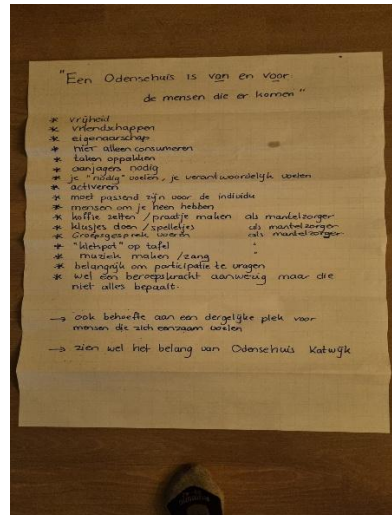 "Een Odensehuis is van en voor
de mensen die er komen"
* vrijheid
* vriendschappen
* eigenaarschap
* niet alleen consumeren
* taken oppakken
* aanjagers nodig
* je "nodig" voelen, je verantwoordelijk voelen
* activeren
* moet passend zijn voor de individu
* mensen om je heen hebben
* koffie zetten / praatje maken als mantelzorger
* klusjes doen / spelletjes als mantelzorger
* Groepsgesprek voeren als mantelzorger
* "kletspot" op tafel "
* muziek maken / zang "
* belangrijk om participatie te vragen
* wel een beroepskracht aanwezig maar die
niet alles bepaalt.
→ ook behoefte aan een dergelijke plek voor
mensen die zich eenzaam voelen
→ zien wel het belang van Odensehuis Katwijk